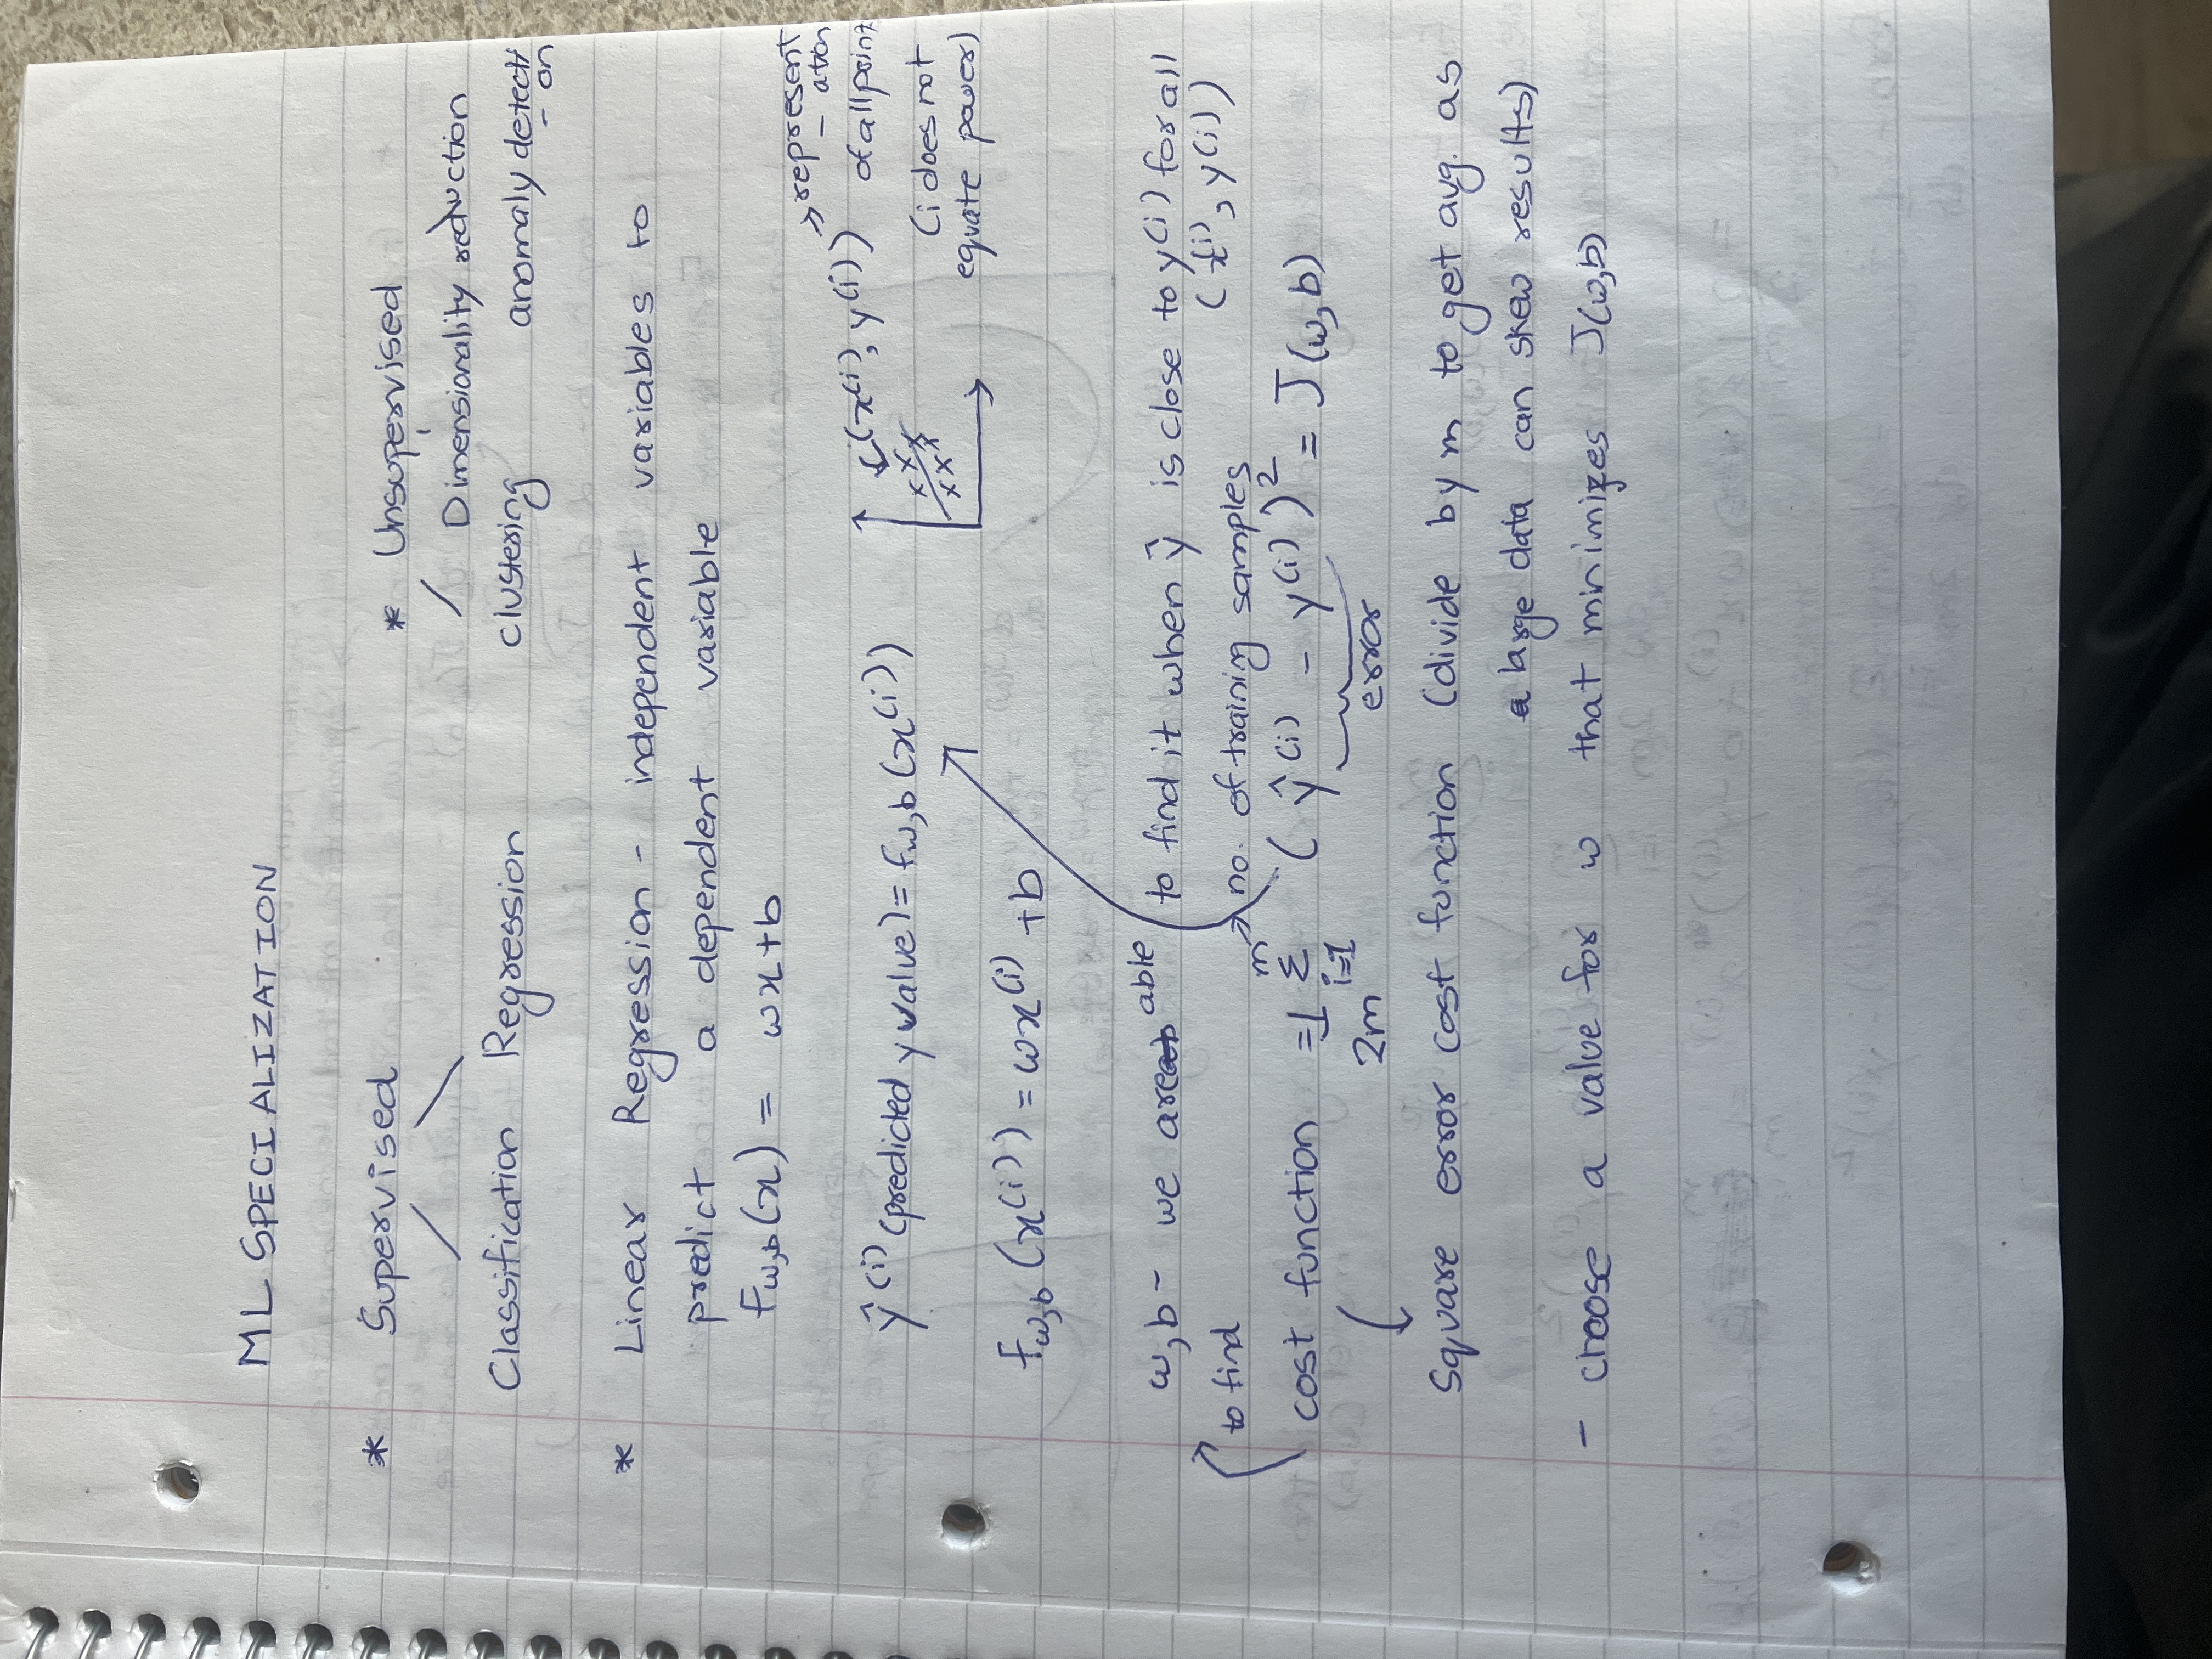 ML SPECIALIZATION
* Supervised * Unsupervised
Dimensionality reduction
Classification Regression clustering anomaly detecti
- on
* Linear Regression - independent variables to
predict a dependent variable
fw,b(x) = wx+b
→ represent
- ation
ŷ(i) (predicted y value) = fw,b(x(i)) (x(i), y(i)) of all point
(i does not
equate power)
fw,b(x(i)) = wx(i) + b
w,b - we are able to find it when ŷ is close to y(i) for all
(x(i), y(i))
to find
m → no. of training samples
cost function = 1 Σ (ŷ(i) - y(i))² = J(w,b)
i=1
2m error
Square error cost function (divide by m to get avg. as
large data can skew results)
- choose a value for w that minimizes J(w,b)